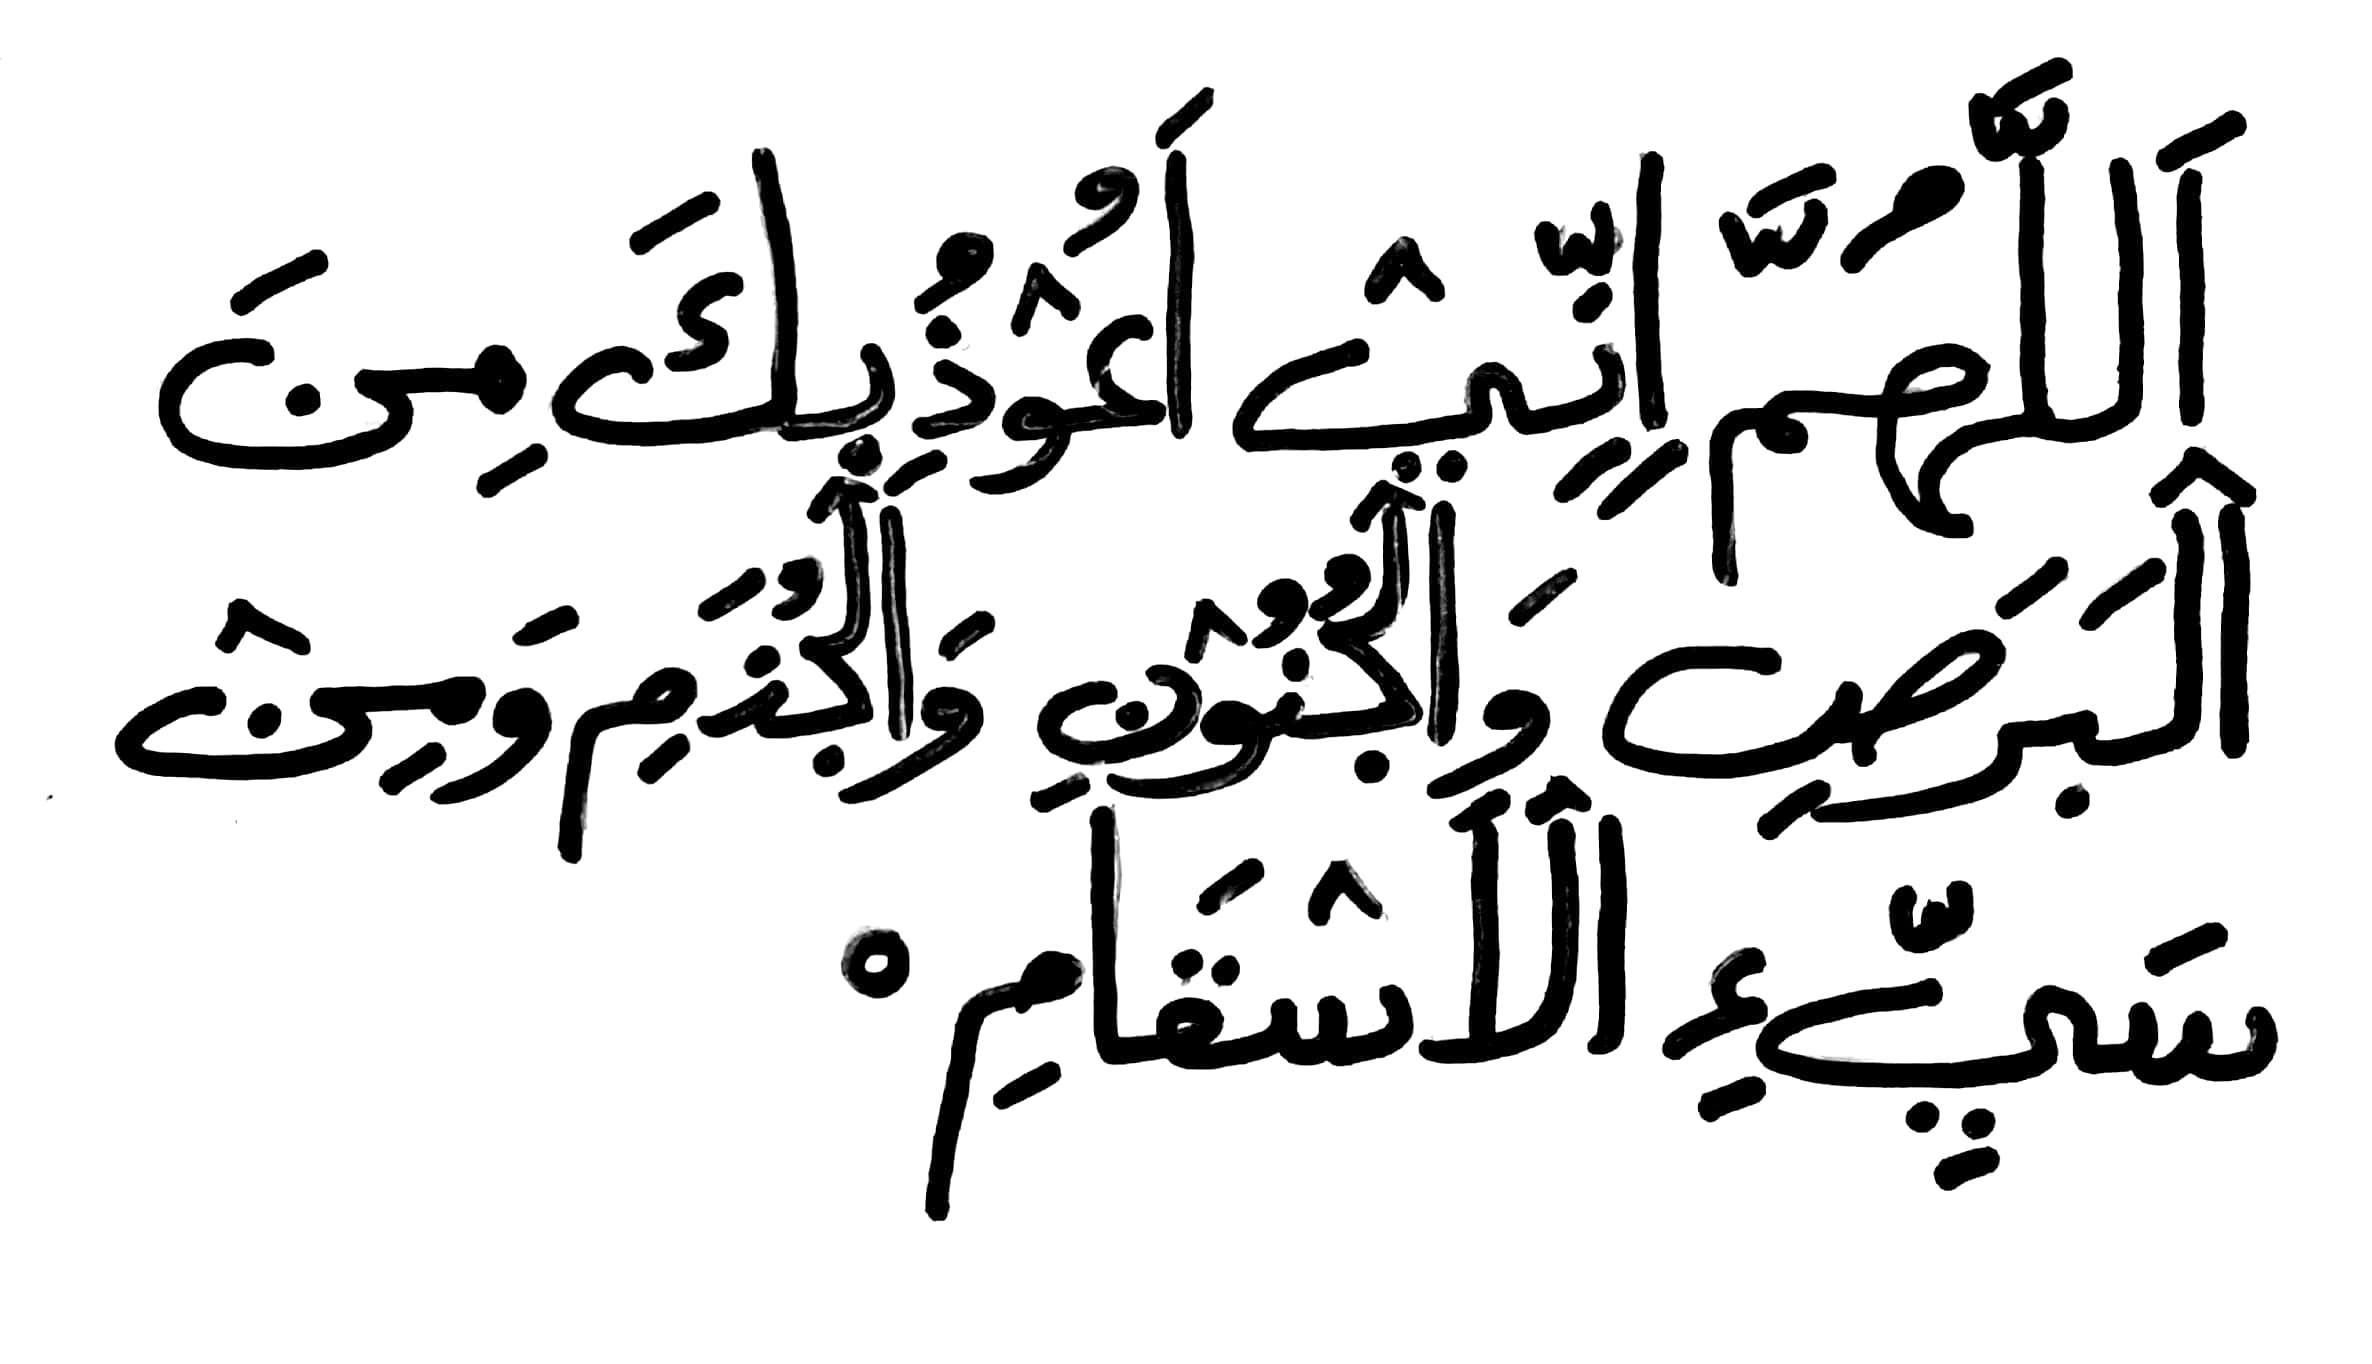 اَللّٰهُمَّ اِنِّيْ اَعُوْذُ بِكَ مِنَ
الْبَرَصِ وَالْجُنُوْنِ وَالْجُذَمِ وَمِنْ
سَيِّءِ الْاَسْقَامِ ۝